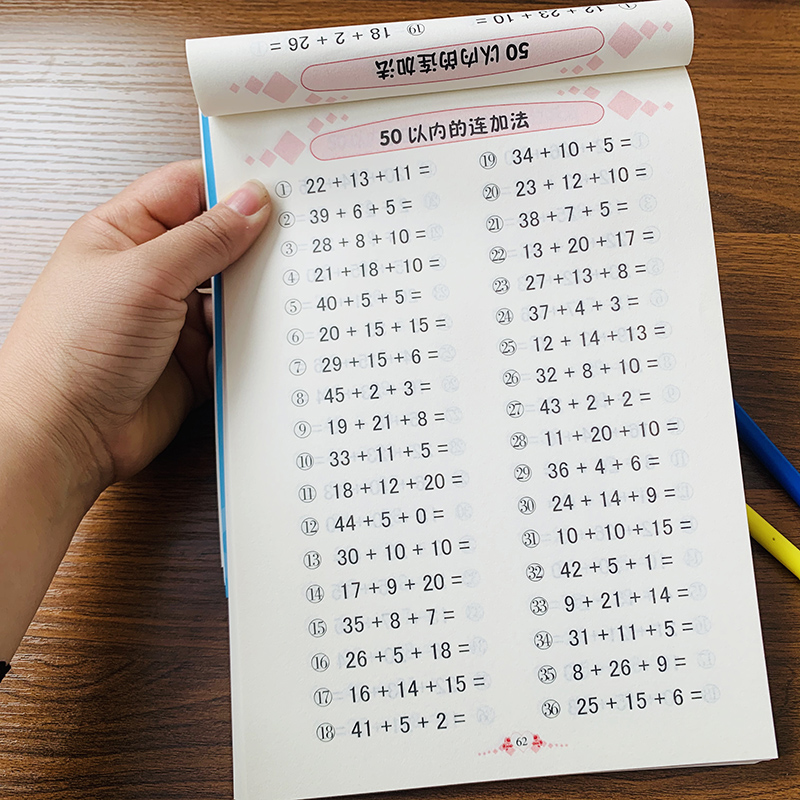 ⑲ 18 + 2 + 26 =
① 12 + 23 + 10 =
50 以内的连加法
50 以内的连加法
① 22 + 13 + 11 =
② 39 + 6 + 5 =
③ 28 + 8 + 10 =
④ 21 + 18 + 10 =
⑤ 40 + 5 + 5 =
⑥ 20 + 15 + 15 =
⑦ 29 + 15 + 6 =
⑧ 45 + 2 + 3 =
⑨ 19 + 21 + 8 =
⑩ 33 + 11 + 5 =
⑪ 18 + 12 + 20 =
⑫ 44 + 5 + 0 =
⑬ 30 + 10 + 10 =
⑭ 17 + 9 + 20 =
⑮ 35 + 8 + 7 =
⑯ 26 + 5 + 18 =
⑰ 16 + 14 + 15 =
⑱ 41 + 5 + 2 =
⑲ 34 + 10 + 5 =
⑳ 23 + 12 + 10 =
㉑ 38 + 7 + 5 =
㉒ 13 + 20 + 17 =
㉓ 27 + 13 + 8 =
㉔ 37 + 4 + 3 =
㉕ 12 + 14 + 13 =
㉖ 32 + 8 + 10 =
㉗ 43 + 2 + 2 =
㉘ 11 + 20 + 10 =
㉙ 36 + 4 + 6 =
㉚ 24 + 14 + 9 =
㉛ 10 + 10 + 15 =
㉜ 42 + 5 + 1 =
㉝ 9 + 21 + 14 =
㉞ 31 + 11 + 5 =
㉟ 8 + 26 + 9 =
㊱ 25 + 15 + 6 =
62